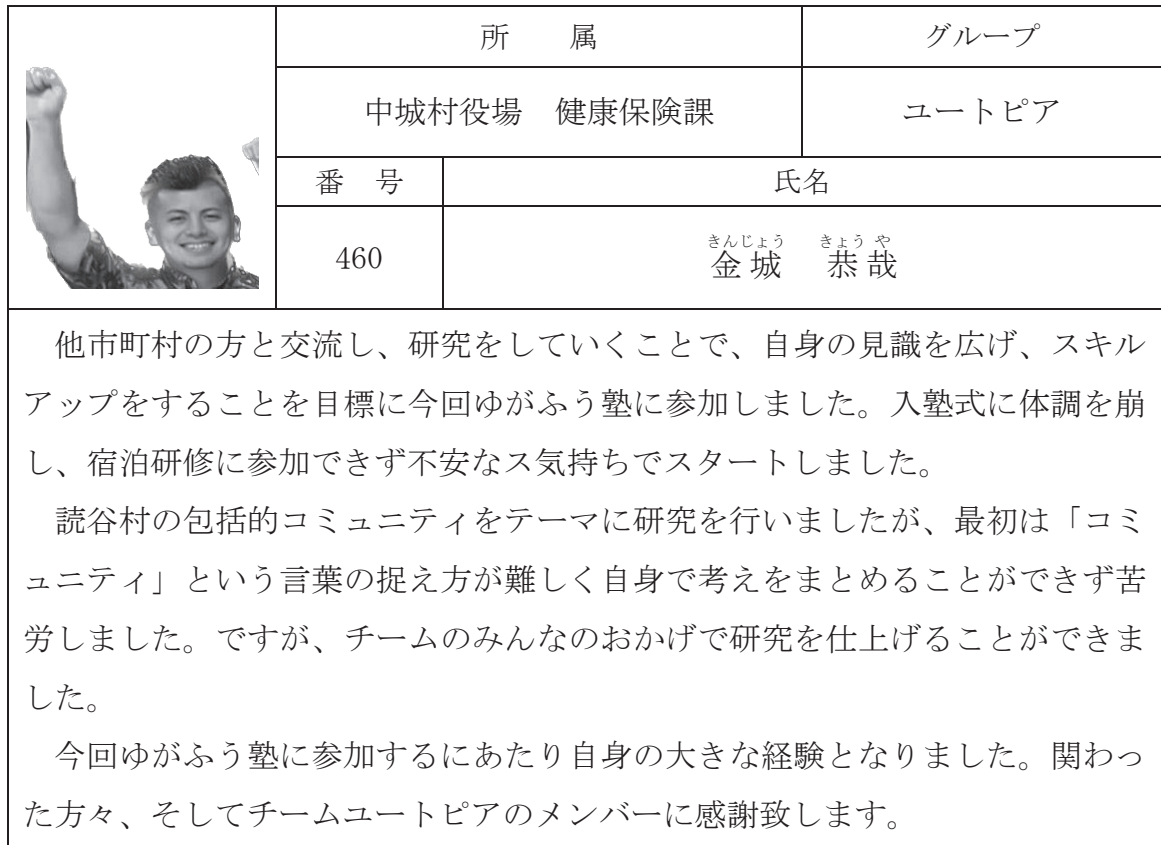 所　属
グループ
中城村役場　健康保険課
ユートピア
番　号
氏名
460
きんじょう　きょうや
金城　恭哉
他市町村の方と交流し、研究をしていくことで、自身の見識を広げ、スキル
アップをすることを目標に今回ゆがふう塾に参加しました。入塾式に体調を崩
し、宿泊研修に参加できず不安なス気持ちでスタートしました。
読谷村の包括的コミュニティをテーマに研究を行いましたが、最初は「コミ
ュニティ」という言葉の捉え方が難しく自身で考えをまとめることができず苦
労しました。ですが、チームのみんなのおかげで研究を仕上げることができま
した。
今回ゆがふう塾に参加するにあたり自身の大きな経験となりました。関わっ
た方々、そしてチームユートピアのメンバーに感謝致します。